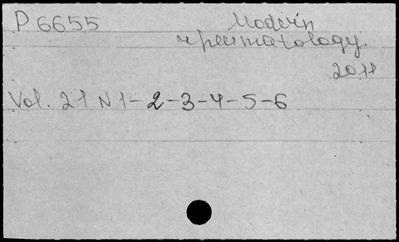 P 6655 Modern
rheumatology.
2011
Vol. 21 N 1-2-3-4-5-6